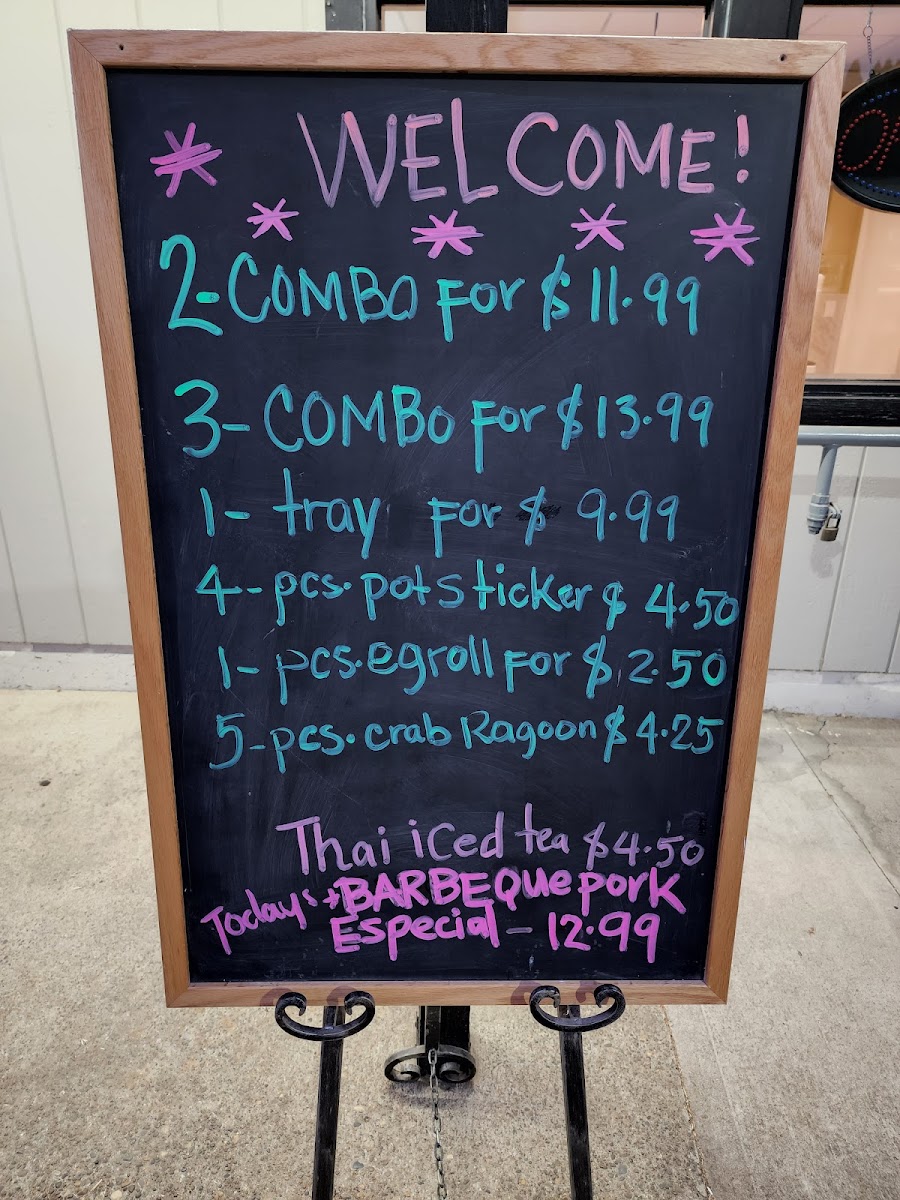 WELCOME!
2-COMBO FOR $11.99
3-COMBO FOR $13.99
1- tray FOR $ 9.99
4-pcs. potsticker $ 4.50
1-pcs.egroll FOR $ 2.50
5-pcs. crab Ragoon $4.25
Thai iced tea $4.50
Today's BARBEQue pork
Especial - 12.99